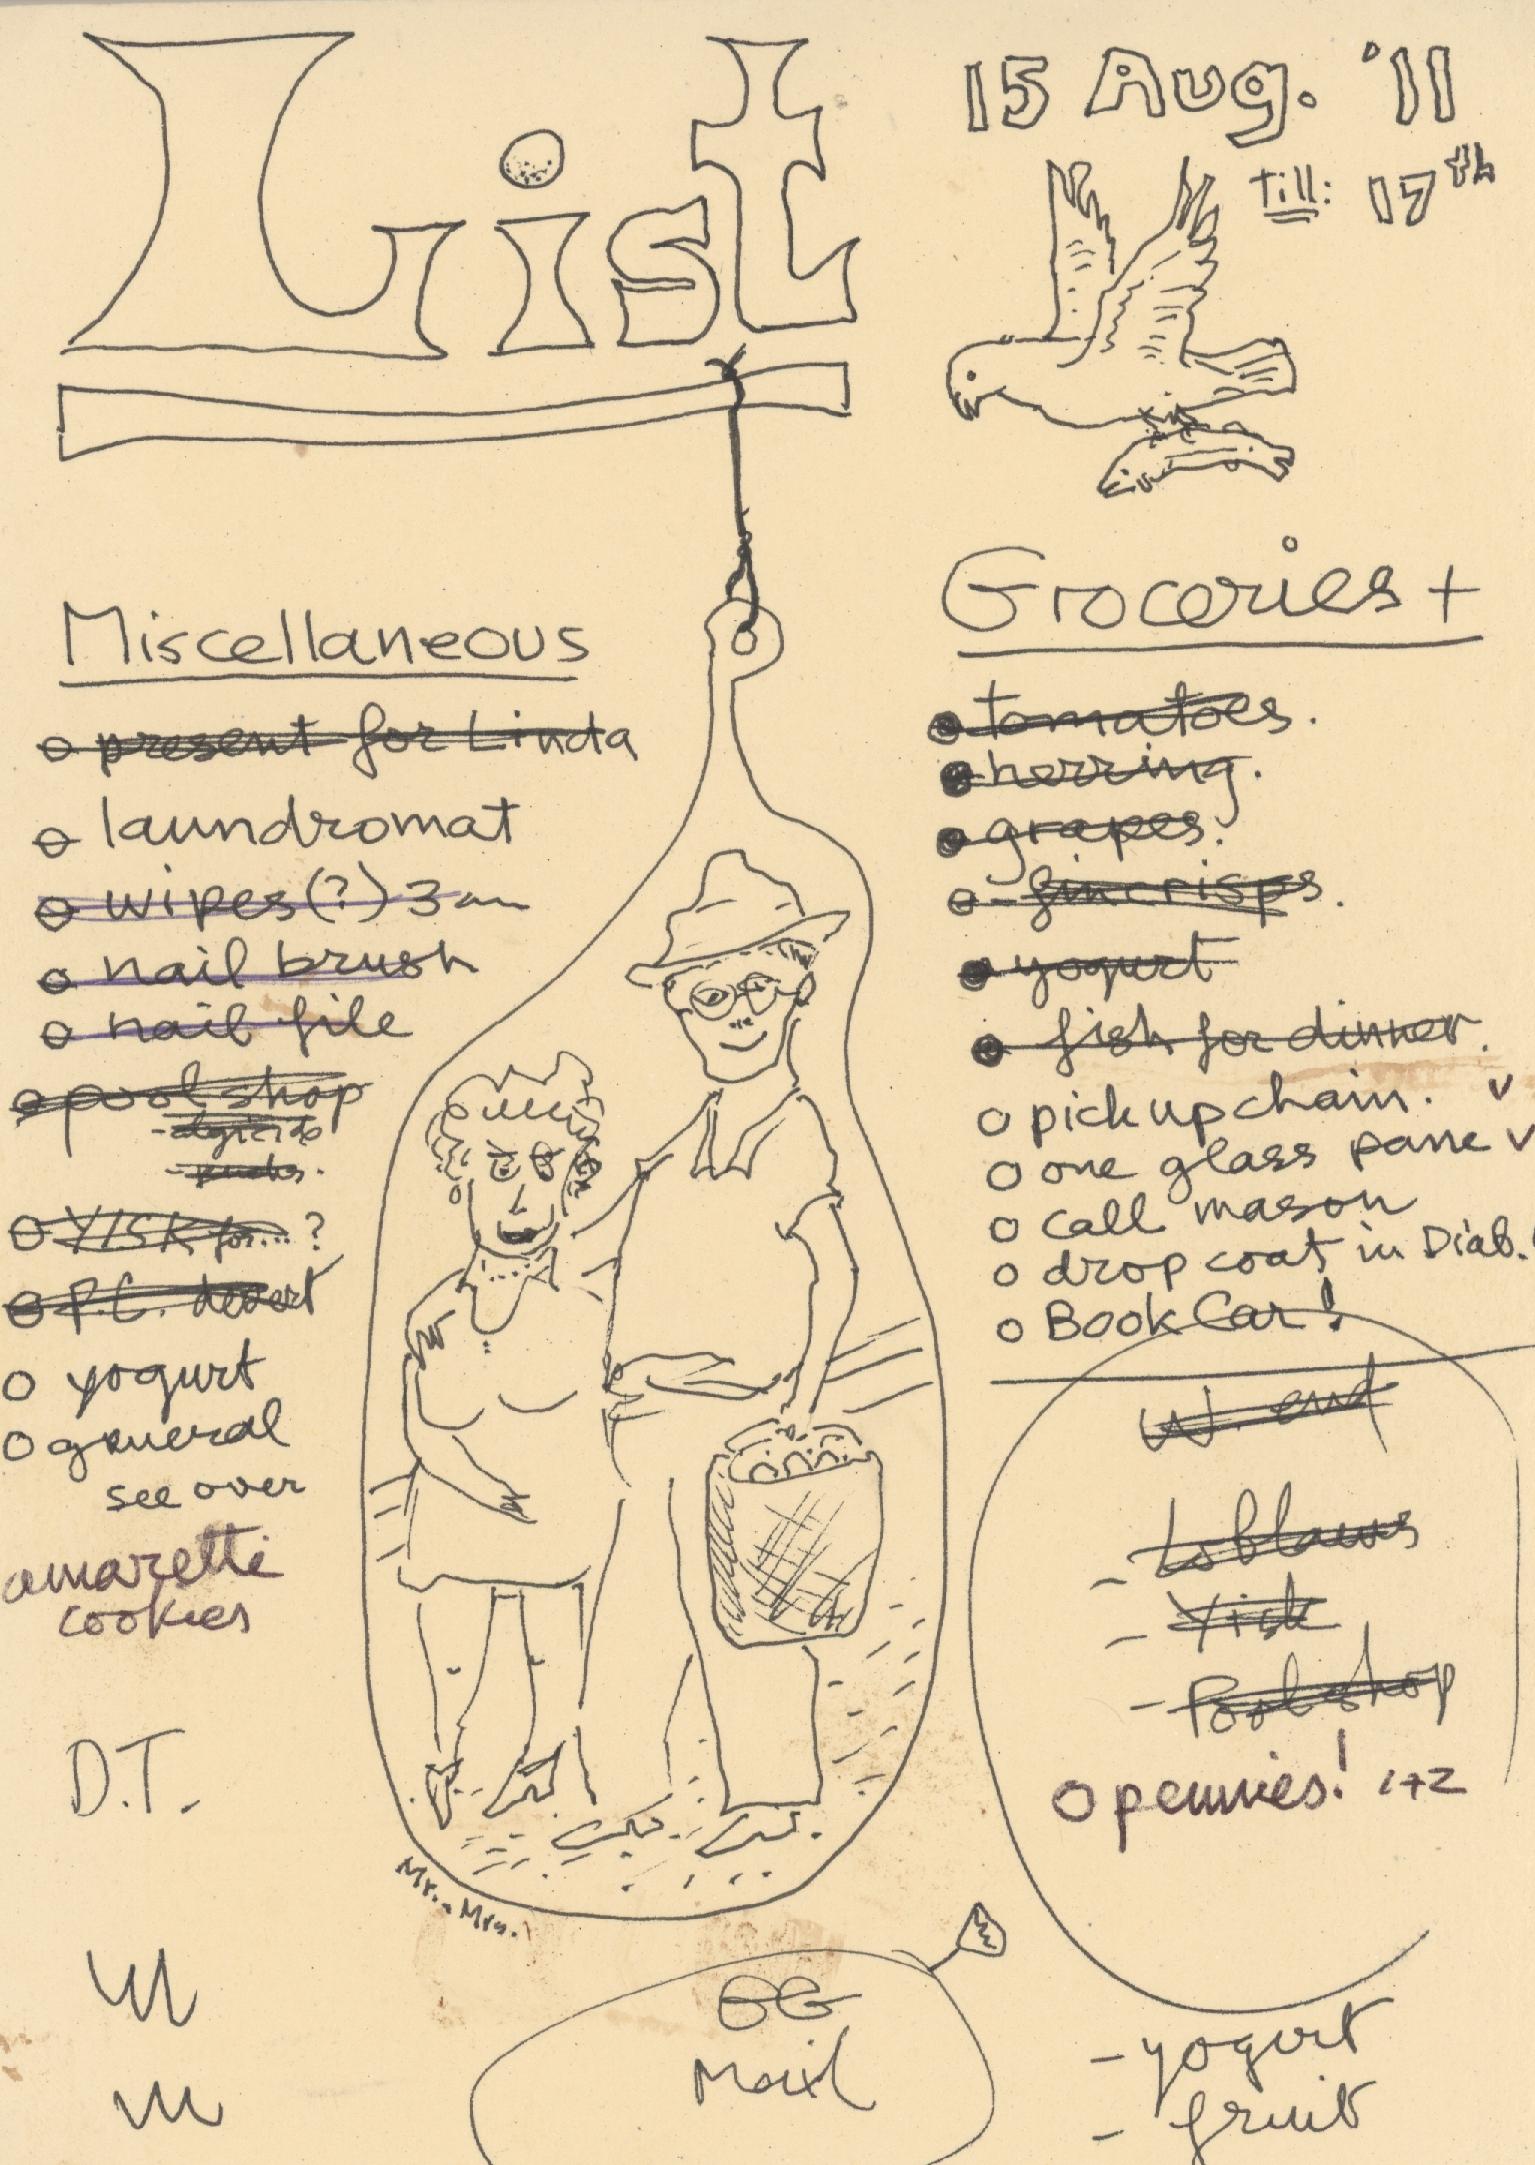 List
15 Aug. '11
till: 17th
Miscellaneous
present for Linda
laundromat
wipes(?) 3
nail brush
nail file
pool shop
- algicide
YISK for...?
P.C. desert
yogurt
general
see over
amaretti
cookies
D.T.
Mr. Mrs.
Groceries +
tomatoes.
herring.
grapes.
- fincrisps.
yogurt
fish for dinner.
pick up chain. v
one glass pane v
call mason
drop coat in Diab.
Book Car!
W. end
- Loblaws
- Yisk
- Pool shop
pennies! 1+2
GG
Mail
- yogurt
- fruit